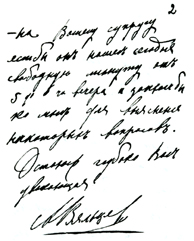 2
-на Вашему супругу
если бы он нашел сегодня
свободную минуту от
5 до 6 ч вечера и заехал бы
ко мне для выяснения
некоторых вопросов.
Остаюсь глубоко Вас
уважающая
АВяльцева